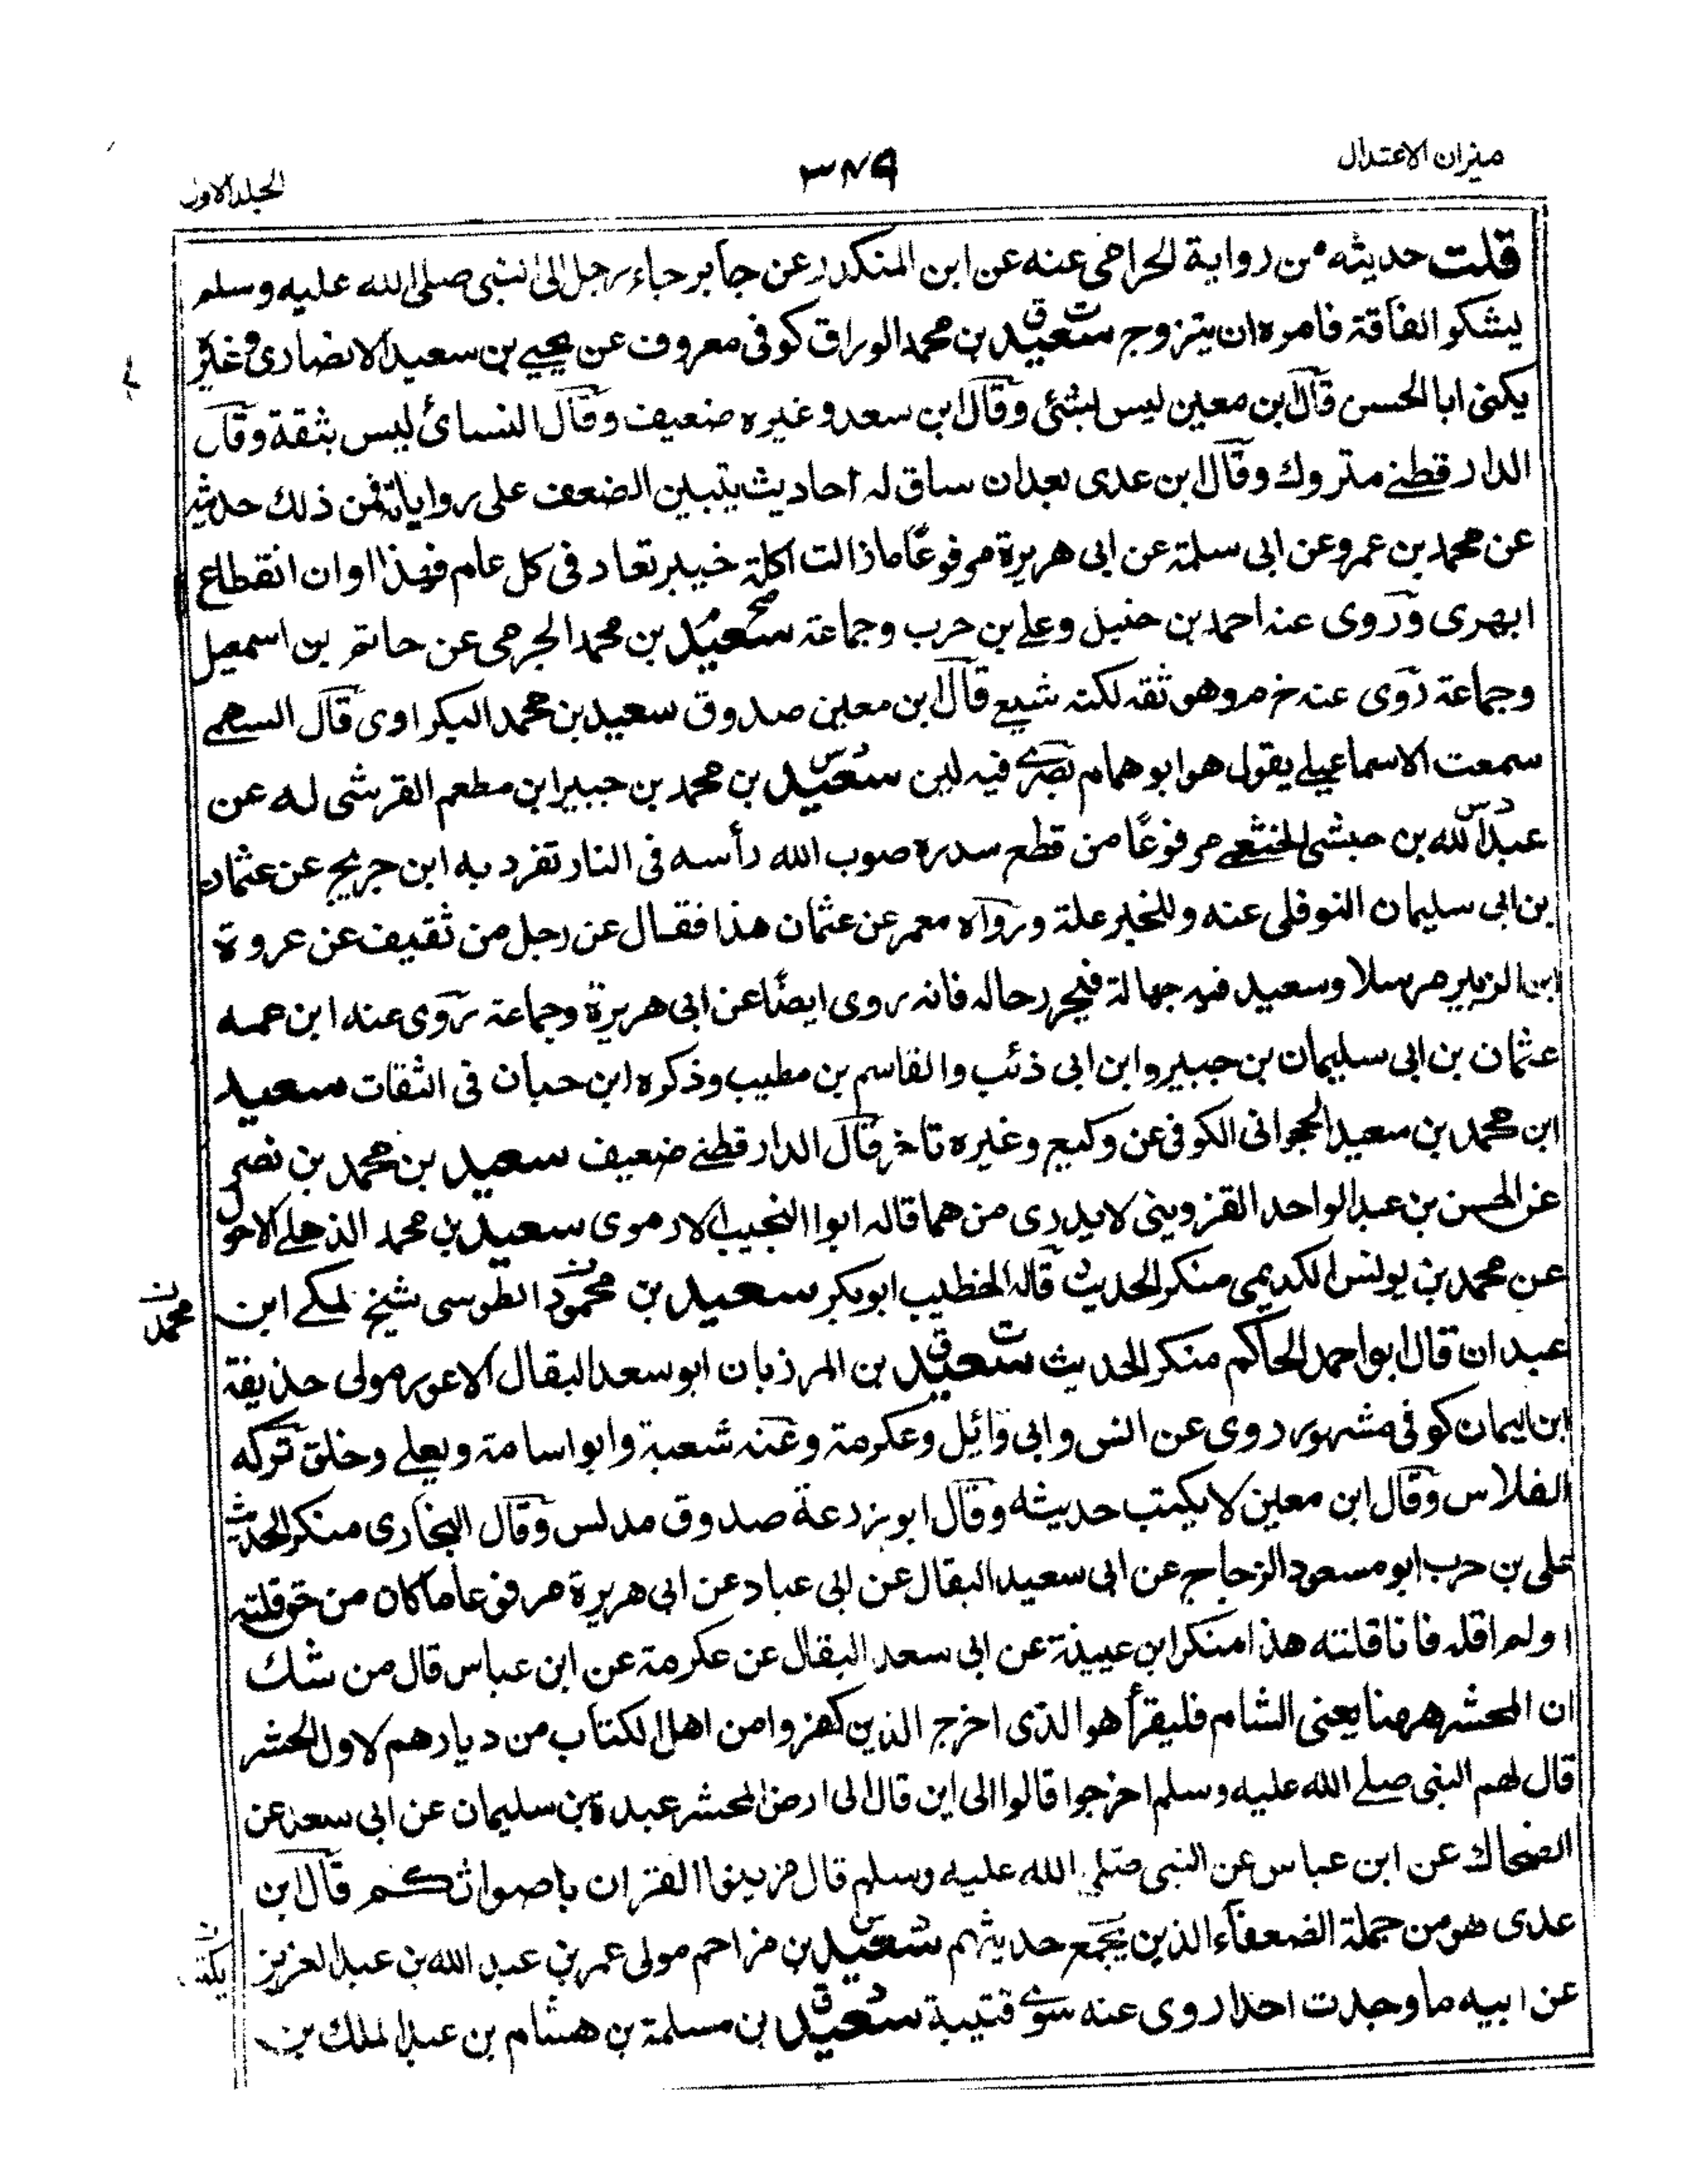 ميزان الاعتدال
٣٧٩
الجلد الاول
قلت حديثه من رواية الحرامى عنه عن ابن المنكدر عن جابر جاء رجل الى النبى صلى الله عليه وسلم
يشكو الفاقة فامره ان يتزوج سعيد بن محمد الوراق كوفى معروف عن يحيى بن سعيد الانصارى وغيره
يكنى ابا الحسن قال ابن معين ليس بشئ وقال ابن سعد وغيره ضعيف وقال النسائ ليس بثقة وقال
الدارقطنے متروك وقال ابن عدى بعد ان ساق له احاديث يتبين الضعف على رواياته فمن ذلك حديثه
عن محمد بن عمرو عن ابى سلمة عن ابى هريرة مرفوعًا ما زالت اكلة خيبر تعاد فى كل عام فهذا اوان انقطاع
ابهرى وروى عنه احمد بن حنبل وعلے بن حرب وجماعة سعيد بن محمد الجرمى عن حاتم بن اسمعيل
وجماعة روى عنه خ م د وهو ثقه لكنه شيع قال ابن معين صدوق سعيد بن محمد البكراوى قال السهمے
سمعت الاسماعيلے يقول هو ابو همام بصرے فيه لين سعيد بن محمد بن جبير ابن مطعم القرشى له عن
عبد الله بن حبشى الخثعمے مرفوعًا من قطع سدرة صوب الله رأسه فى النار تفرد به ابن جريج عن عثمان
بن ابى سليمان النوفلى عنه وللخبر علة ورواه معمر عن عثمان هذا فقال عن رجل من ثقيف عن عروة
ابن الزبير مرسلا وسعيد فيه جهالة فيجر رحاله فانه روى ايضًا عن ابى هريرة وجماعة روى عنه ابن عمه
عثمان بن ابى سليمان بن جبير وابن ابى ذئب والقاسم بن مطيب وذكره ابن حبان فى الثقات سعيد
ابن محمد بن سعيد الحجوانى الكوفى عن وكيع وغيره تاخر قال الدارقطنے ضعيف سعيد بن محمد بن نصر
عن الحسن بن عبد الواحد القزوينى لا يدرى من هما قاله ابوا النجيب الارموى سعيد بن محمد الذهلے الاحول
عن محمد بن يونس الكديمى منكر الحديث قاله الخطيب ابو بكر سعيد بن محمود الطرسى شيخ لمكے ابن
محمد
عبدان قال ابو احمد الحاكم منكر الحديث سعيد بن المرزبان ابو سعد البقال الاعور مولى حذيفة
ابن اليمان كوفى مشهور روى عن انس وابى وائل وعكرمة وعنه شعبة وابو اسامة ويعلے وخلق تركه
الفلاس وقال ابن معين لا يكتب حديثه وقال ابو زرعة صدوق مدلس وقال البخارى منكر الحديث
على بن حرب ابو مسعود الزجاج عن ابى سعيد البقال عن ابى عباد عن ابى هريرة مرفوعا ما كان من حق قلته
اولم اقله فانا قلته هذا منكر ابن عيينة عن ابى سعد البقال عن عكرمة عن ابن عباس قال من شك
ان المحشر ههنا يعنى الشام فليقرأ هو الذى اخرج الذين كفروا من اهل الكتاب من ديارهم لاول الحشر
قال لهم النبى صلے الله عليه وسلم اخرجوا قالوا الى اين قال الى ارض المحشر عبدة بن سليمان عن ابى سعد عن
الضحاك عن ابن عباس عن النبى صلى الله عليه وسلم قال زينوا القران باصواتكم قال ابن
عدى هو من جملة الضعفاء الذين يجمع حديثهم سعيد بن مزاحم مولى عمر بن عبد الله بن عبد العزيز
يكتب
عن ابيه ما وجدت احدا روى عنه سوے قتيبة سعيد بن مسلمة بن هشام بن عبد الملك بن